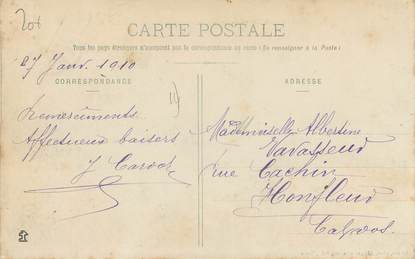 20+
CARTE POSTALE
Tous les pays étrangers n'acceptent pas la correspondance au recto (Se renseigner à la Poste)
27 Janv. 1910
CORRESPONDANCE
ADRESSE
Remerciments
Affectueux baisers
J Cardot
Mademoiselle Albertine
Vavasseur
rue Cachin
Honfleur
Calvados